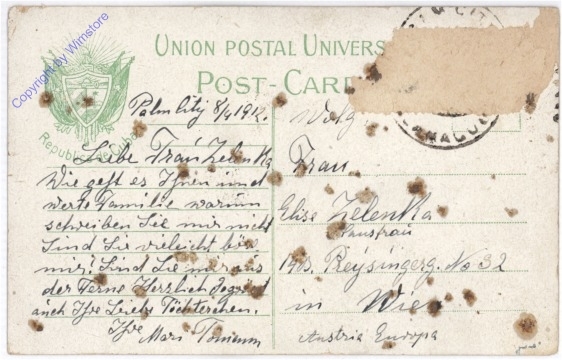 Copyright by Wimstore
UNION POSTAL UNIVERS
POST-CAR
Republica de Cuba
CITY
CAMAGUEY
Palm City 8/4 1912.
Liebe Frau Zelenka
Wie geht es Ihnen und
werte Familie warum
schreiben Sie mir nicht
Sind Sie vieleicht bös
mir! Sind Sie mir aus
der Ferne Herzlich
auch Ihre Töchterchen.
Ihre
Mari
Frau
Elise Zelenka
Hausfrau
No 32
in Wien
Austria Europa